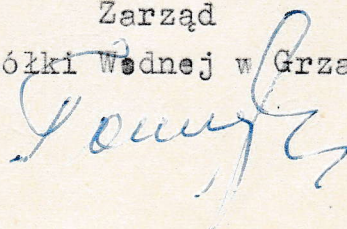 Zarząd
ółki Wodnej w Grza